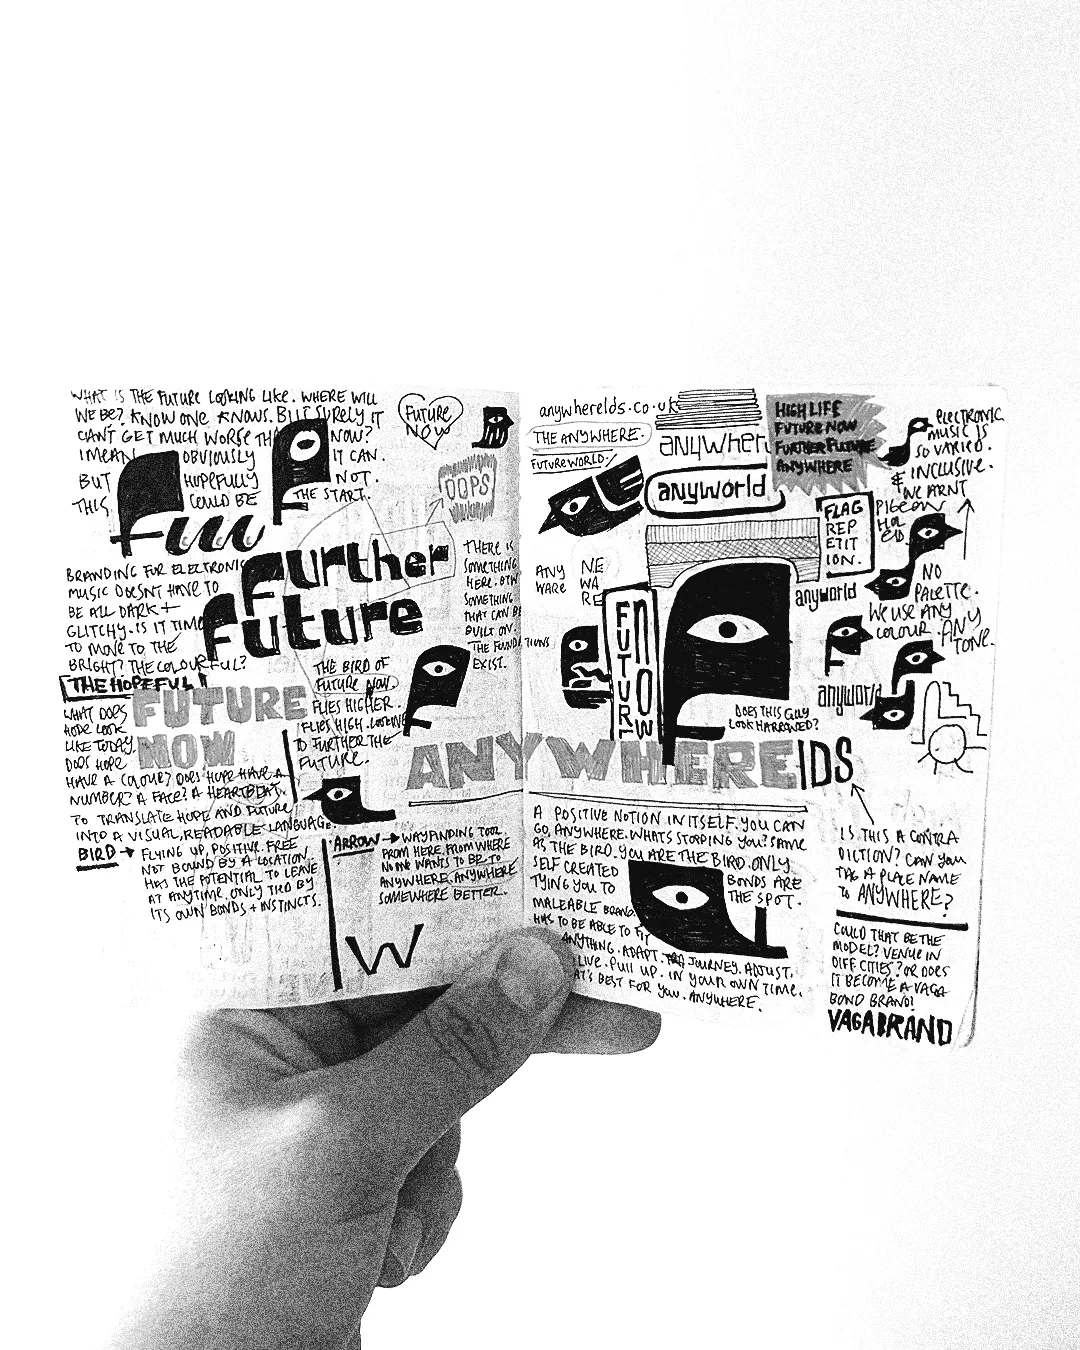 WHAT IS THE FUTURE LOOKING LIKE. WHERE WILL
WE BE? KNOW ONE KNOWS. BUT SURELY IT
CAN'T GET MUCH WORSE THAN NOW?
I MEAN OBVIOUSLY IT CAN.
BUT HOPEFULLY NOT.
THIS COULD BE THE START.
FUTURE
NOW
OOPS
further
future
BRANDING FOR ELECTRONIC
MUSIC DOESNT HAVE TO
BE ALL DARK +
GLITCHY. IS IT TIME
TO MOVE TO THE
BRIGHT? THE COLOURFUL?
THE HOPEFUL
FUTURE
NOW
WHAT DOES
HOPE LOOK
LIKE TODAY.
DOES HOPE
HAVE A COLOUR? DOES HOPE HAVE A
NUMBER? A FACE? A HEARTBEAT.
TO TRANSLATE HOPE AND FUTURE
INTO A VISUAL, READABLE LANGUAGE.
BIRD → FLYING UP, POSITIVE. FREE
NOT BOUND BY A LOCATION.
HAS THE POTENTIAL TO LEAVE
AT ANYTIME. ONLY TIED BY
ITS OWN BONDS + INSTINCTS.
THERE IS
SOMETHING
HERE. BTW
SOMETHING
THAT CAN BE
BUILT ON.
THE FOUNDATIONS
EXIST.
THE BIRD OF
FUTURE NOW.
FLIES HIGHER.
FLIES HIGH. LOOKING
TO FURTHER THE
FUTURE.
ARROW → WAYFINDING TOOL.
FROM HERE, FROM WHERE
NONE WANTS TO BE. TO
ANYWHERE. ANYWHERE
SOMEWHERE BETTER.
W
anywhereIds.co.uk
THE ANYWHERE.
FUTUREWORLD.
anywhere
anyworld
HIGHLIFE
FUTURE NOW
FURTHER FUTURE
ANYWHERE
ELECTRONIC
MUSIC IS
SO VARIED.
& INCLUSIVE.
WE ARNT
PIGEON
HOLED
FLAG
REP
ETIT
ION.
ANY
WARE
NE
WA
RE
FUTURE
NOW
anyworld
NO
PALETTE.
WE USE ANY
COLOUR. ANY
TONE.
anyworld
DOES THIS GUY
LOOK HARROWED?
ANYWHEREIDS
A POSITIVE NOTION IN ITSELF. YOU CAN
GO, ANYWHERE. WHATS STOPPING YOU? SAME
AS THE BIRD. YOU ARE THE BIRD. ONLY
SELF CREATED BONDS ARE
TYING YOU TO THE SPOT.
MALEABLE BRAND.
HAS TO BE ABLE TO FIT
ANYTHING. ADAPT. JOURNEY. ADJUST.
LIVE. PULL UP. IN YOUR OWN TIME.
BEST FOR YOU. ANYWHERE.
IS THIS A CONTRA
DICTION? CAN YOU
TAG A PLACE NAME
TO ANYWHERE?
COULD THAT BE THE
MODEL? VENUE IN
DIFF CITIES? OR DOES
IT BECOME A VAGA
BOND BRAND!
VAGABRAND